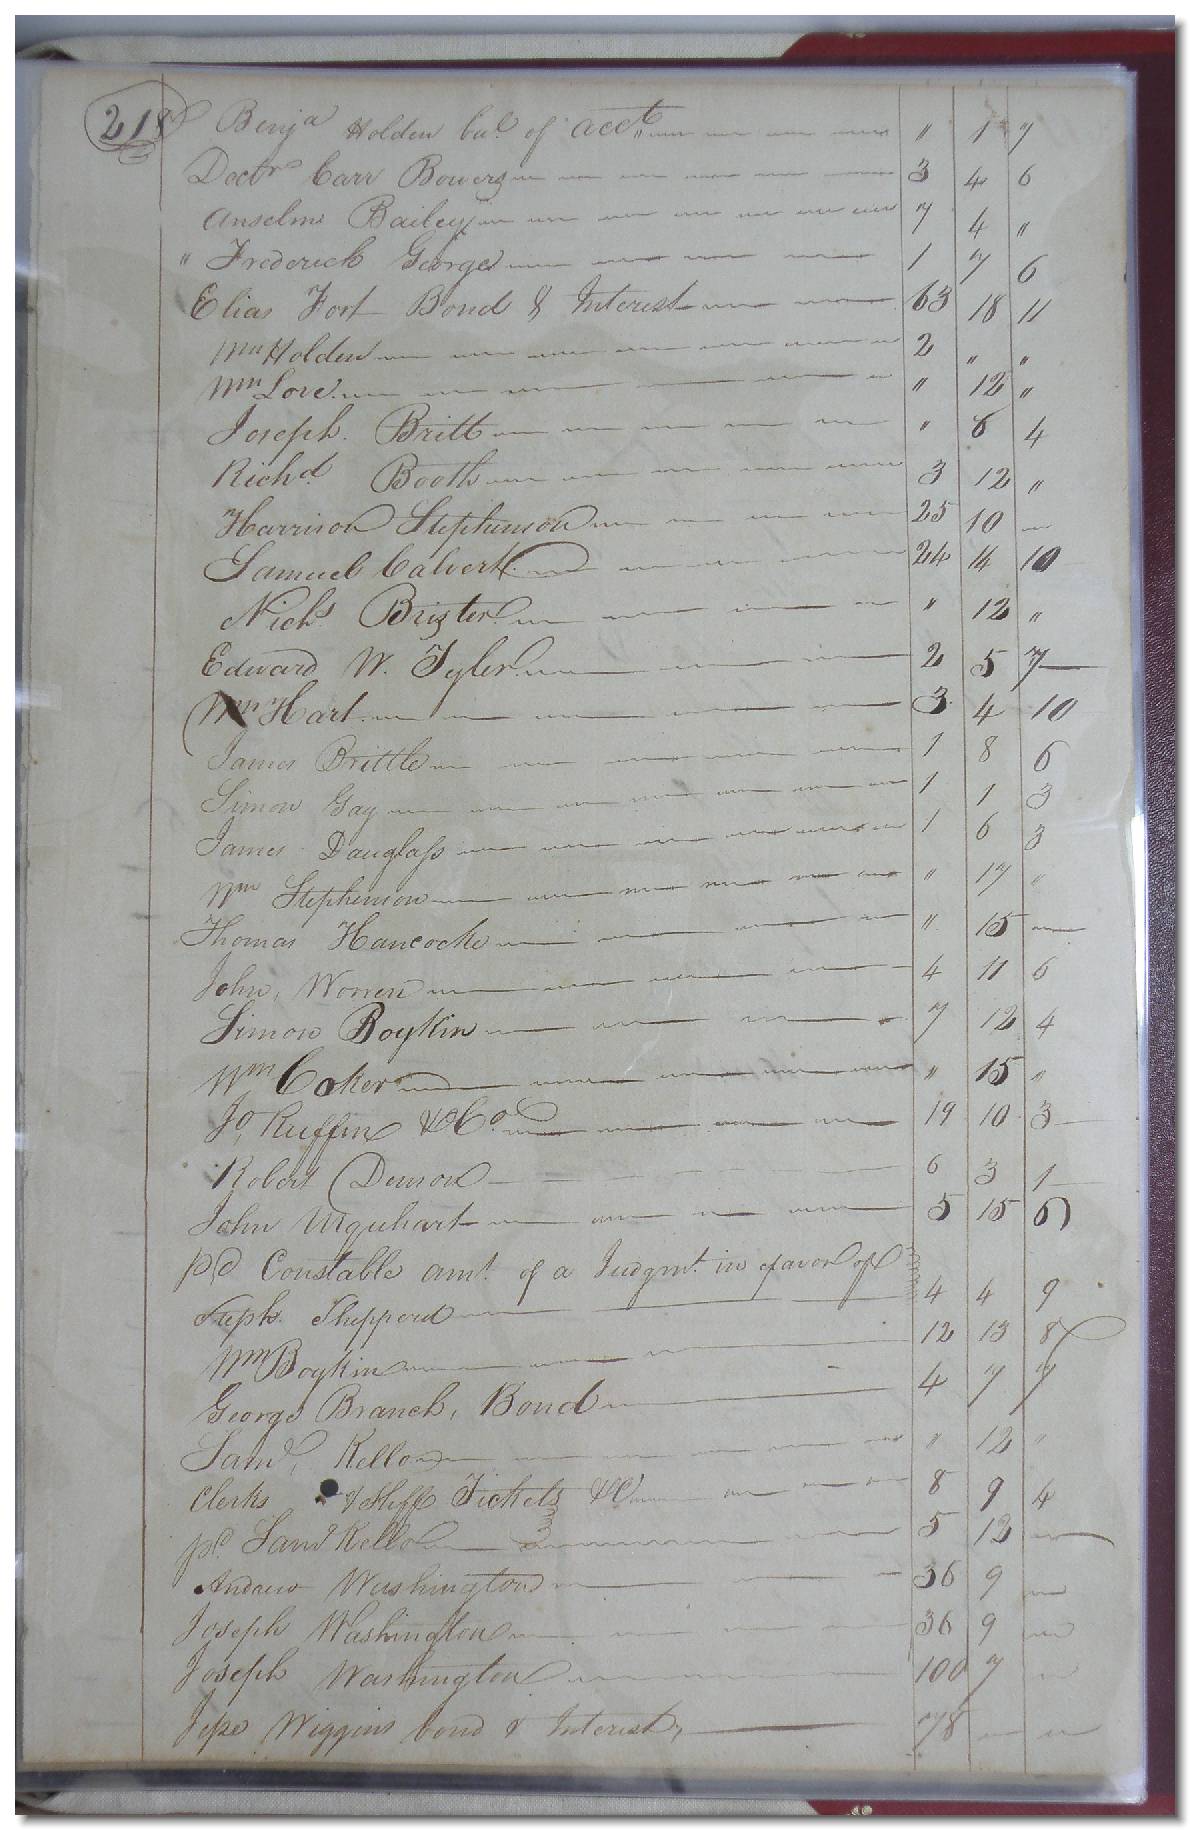 218
Benja Holden bal. of acct " 1 7
Doctr Carr Bowers 3 4 6
Anselm Bailey 7 4 "
" Frederick George 1 7 6
Elias Fort Bond & Interest 63 18 11
Wm Holden 2 " "
Wm Love " 12 "
Joseph. Britt " 8 4
Richd Booth 3 12 "
Harrison Stephenson 25 10
Samuel Calvert 24 14 10
Nichs Brister " 12 "
Edward W. Tyler 2 5 7
Wm Hart 3 4 10
James Brittle 1 8 6
Simon Gay 1 1 3
James Douglass 1 6 3
Wm Stephenson " 17 "
Thomas Hancocke " 15
John, Worren 4 11 6
Simon Boykin 7 12 4
Wm Coker " 15 "
Jo, Ruffin & Co 19 10 3
Robert Denson 6 3 1
John Urquhart 5 15 6
pd Constable amt. of a Judgmt. in favor of
Steph. Shepperd 4 4 9
Wm Boykin 12 13 8
George Branch, Bond 4 7 7
Saml, Kello " 12 "
Clerks & Shff Tickets &c 8 9 4
pd. Saml Kello 5 12
Andrew Washington 36 9
Joseph Washington 36 9
Joseph Washington 100 7
Jesse Wiggins bond & Interest, 78